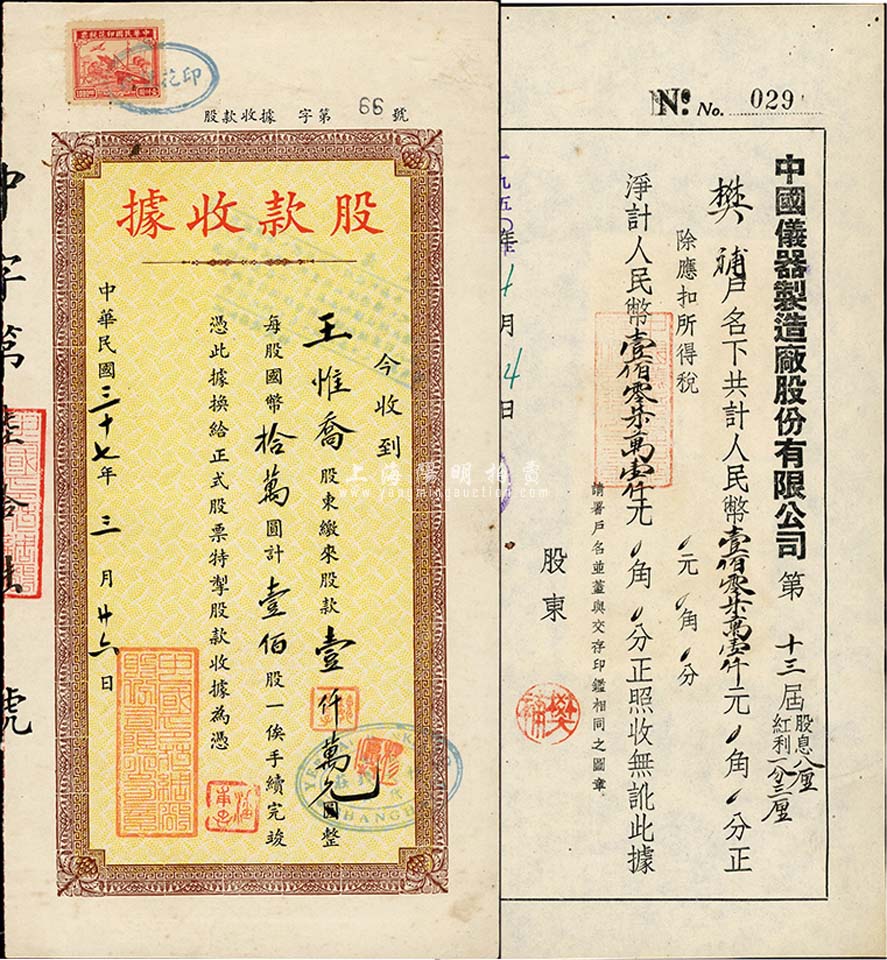 中華民國印花稅票
股款收據 字第 66 號
股款收據
今收到
王惟喬 股東繳來股款 壹仟萬元 圓整
每股國幣 拾萬 圓計 壹佰 股一俟手續完竣
憑此據換給正式股票特掣股款收據為憑
中華民國 三十七 年 三 月 廿六 日
上海陽明拍賣
www.yangmingauction.com
No. No. 029
中國儀器製造廠股份有限公司 第 十三 屆 股息 八厘
紅利 一分三厘
樊補 戶名下共計人民幣 壹佰零柒萬壹仟 元 0 角 0 分正
除應扣所得稅 0 元 0 角 0 分
淨計人民幣 壹佰零柒萬壹仟 元 0 角 0 分正照收無訛此據
請署戶名並蓋與交存印鑑相同之圖章
股東
一九五〇年 月 4 日